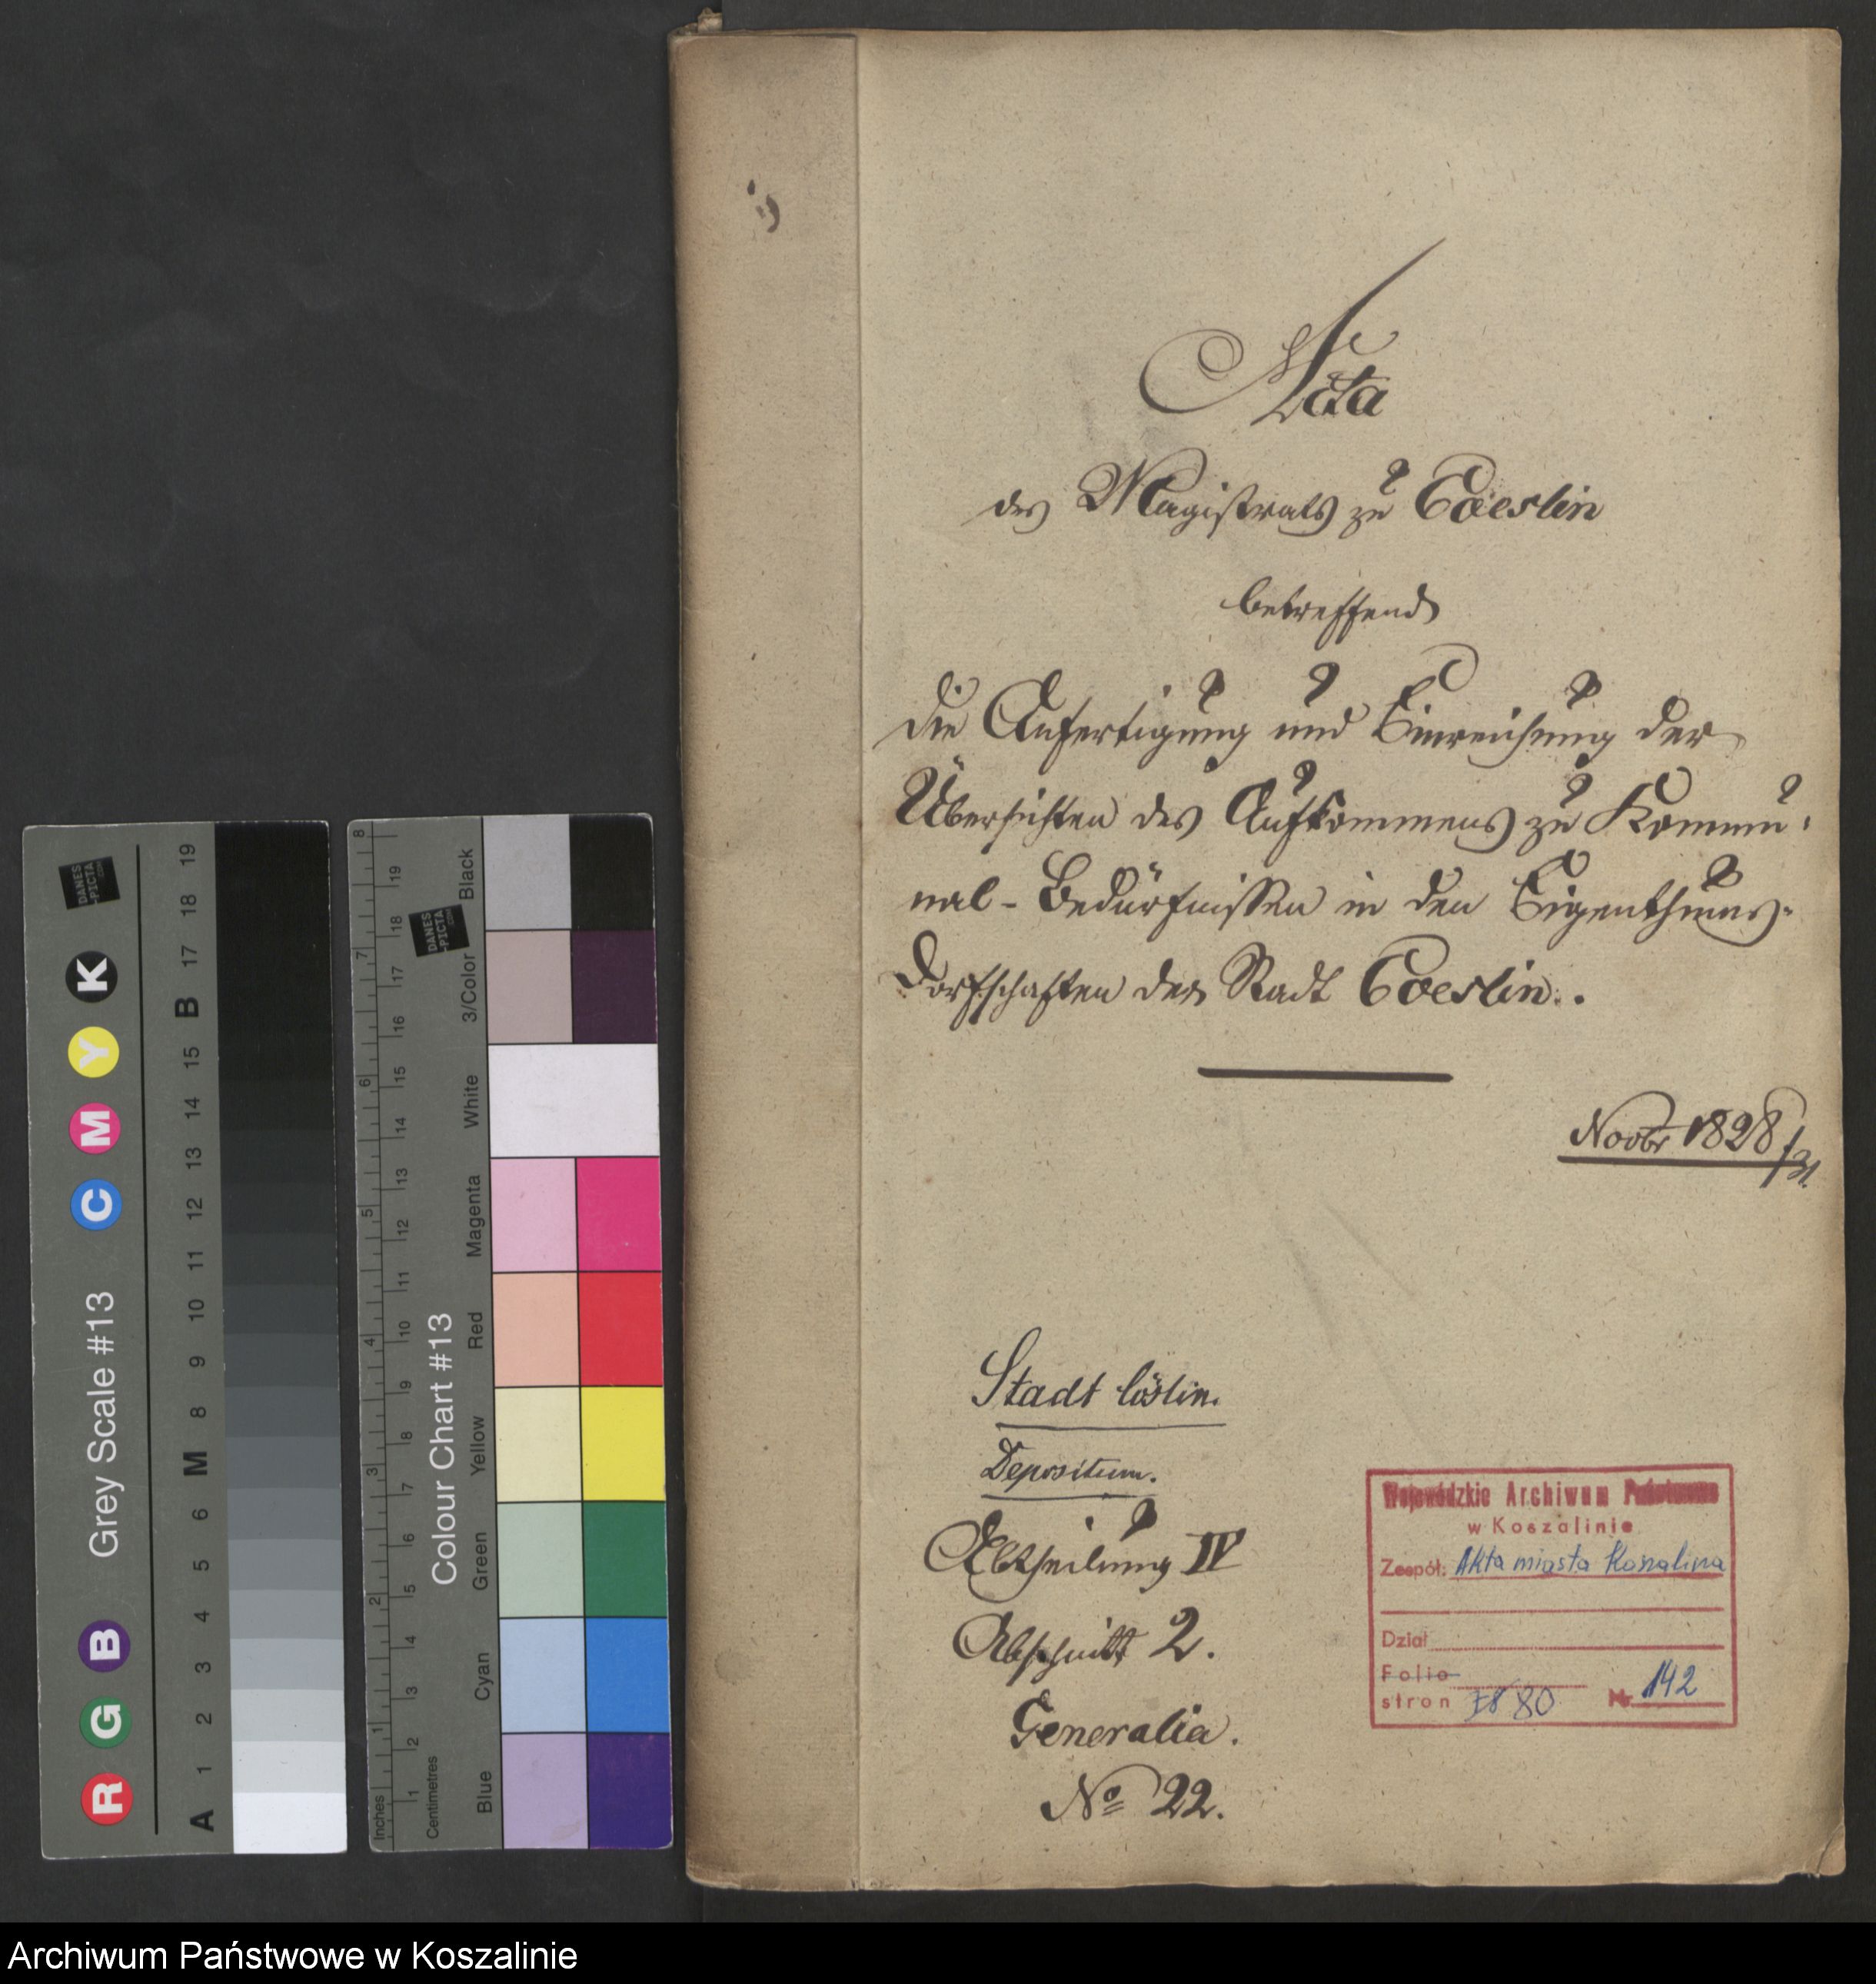 Acta
des Magistrats zu Coeslin
betreffend
die Anfertigung und Einreichung der
Übersichten des Aufkommens zu Kommu-
nal-Bedürfnissen in den Eigenthums-
Dorfschaften der Stadt Coeslin.
Novbr 1828/31.
Stadt Cöslin.
Depositum.
Abtheilung IV
Abschnitt 2.
Generalia.
No 22.
Wojewódzkie Archiwum Państwowe
w Koszalinie
Zespół: Akta miasta Koszalina
Dział
Folio
stron 80 Nr 142
Grey Scale #13
DANES
-PICTA
.COM
R G B C M Y K
A 1 2 3 4 5 6 M 8 9 10 11 12 13 14 15 B 17 18 19
Colour Chart #13
DANES
-PICTA
.COM
Blue Cyan Green Yellow Red Magenta White 3/Color Black
Inches 1 2 3 4 5 6 7 8
Centimetres 1 2 3 4 5 6 7 8 9 10 11 12 13 14 15 16 17 18 19
Archiwum Państwowe w Koszalinie